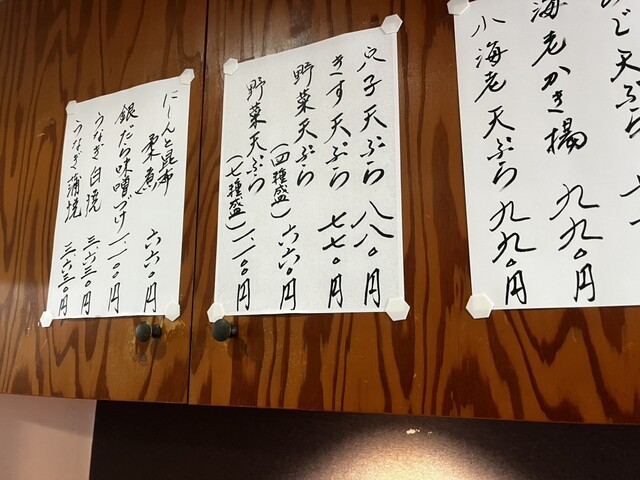 天ぷら
海老かき揚 九九〇円
小海老天ぷら 九九〇円
穴子天ぷら 八八〇円
きす天ぷら 七七〇円
野菜天ぷら
(四種盛) 六六〇円
野菜天ぷら
(七種盛) 一、一〇〇円
にしんと昆布
柔煮 六六〇円
銀だら味噌づけ 一、一〇〇円
うなぎ白焼 三、六三〇円
うなぎ蒲焼 三、六三〇円